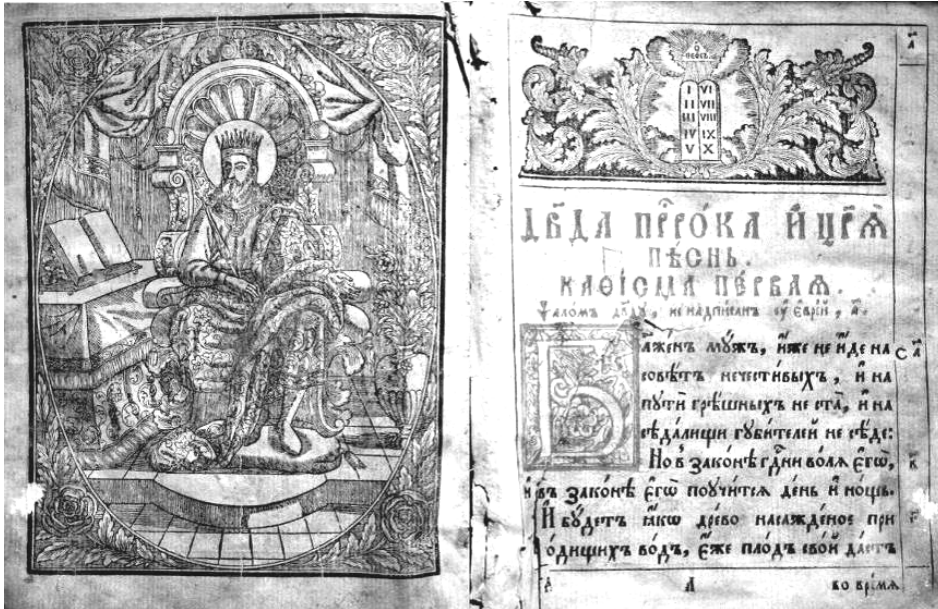 а҃
Ѳеосъ
I VI
II VII
III VIII
IV IX
V X
Дв҃да прⷪ҇ро́ка и҆ цр҃ѧ̀
пѣ́снь.
Каѳі́сма пе́рваѧ.
Ѱало́мъ дв҃ду, не надпи́санъ ᲂу҆ є҆врє́й, а҃.
Бл҃же́нъ мꙋ́жъ, и҆́же не и҆́де на
совѣ́тъ нечести́выхъ, и҆ на
пꙋтѝ грѣ́шныхъ не ста̀, и҆ на
сѣда́лищи гꙋби́телей не сѣ́де:
Но в̾ зако́нѣ гдⷭ҇ни во́лѧ є҆гѡ̀,
и҆ въ зако́нѣ є҆гѡ̀ поꙋчи́тсѧ де́нь и҆ но́щь.
И҆ бꙋ́детъ ꙗ҆́кѡ дре́во насажде́ное при
и҆схо́дищихъ во́дъ, є҆́же пло́дъ сво́й да́стъ
а҃
во вре́мѧ